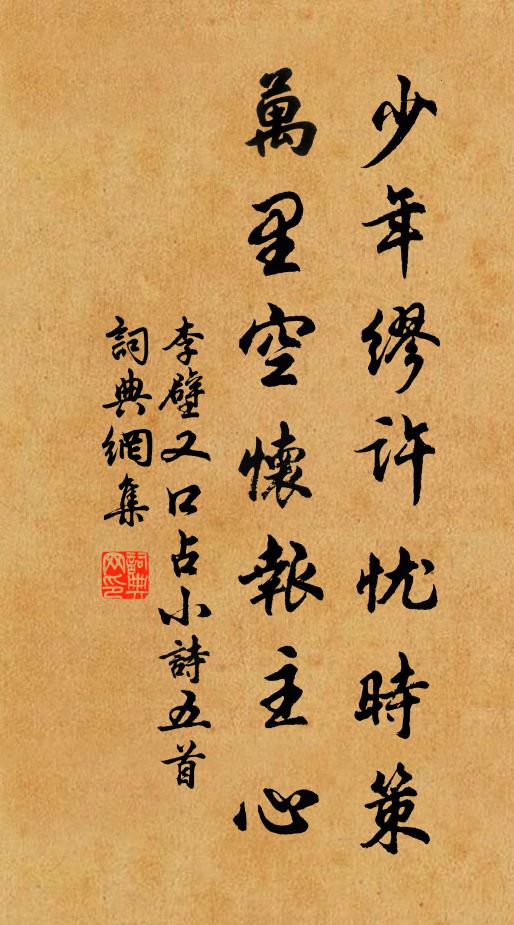 少年繆許忧時策
萬里空懷報主心
李壁又口占小詩五首
詞典網集
詞典网印